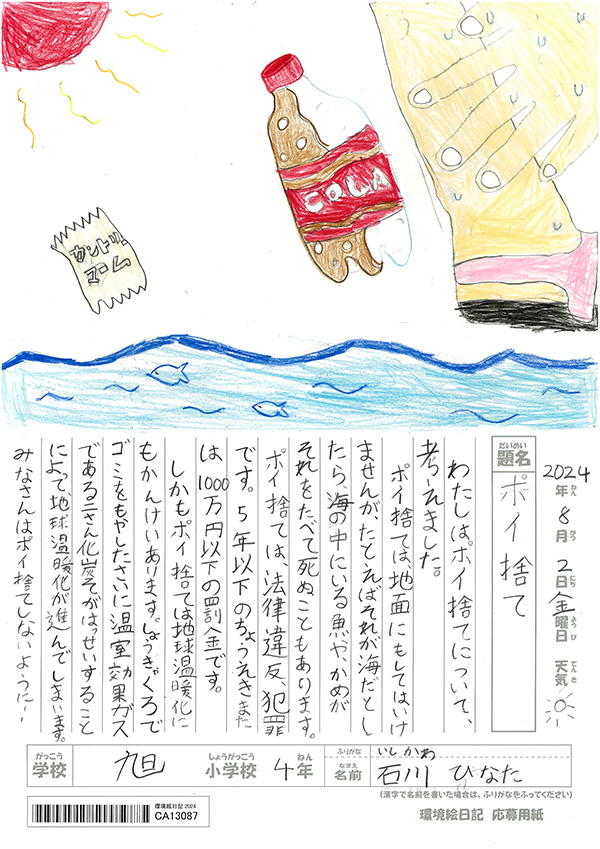 COLA
カントリ
マーム
2024年8月2日金曜日 天気
だいめい
題名
ポイ捨て
わたしは、ポイ捨てについて、
考えました。
ポイ捨ては、地面にもしてはいけ
ませんが、たとえばそれが海だとし
たら、海の中にいる魚や、かめが
それをたべて死ぬこともあります。
ポイ捨ては、法律違反、犯罪
です。5年以下のちょうえきまた
は1000万円以下の罰金です。
しかもポイ捨ては地球温暖化に
もかんけいあります。しょうきゃくろで
ゴミをもやしたさいに温室効果ガス
である二さん化炭そがはっせいすること
によって、地球温暖化が進んでしまいます。
みなさんはポイ捨てしないように!
がっこう しょうがっこう ねん
学校 旭 小学校 4年
ふりがな いしかわ
なまえ
名前 石川 ひなた
(漢字で名前を書いた場合は、ふりがなをふってください)
環境絵日記 2024
CA13087
環境絵日記 応募用紙